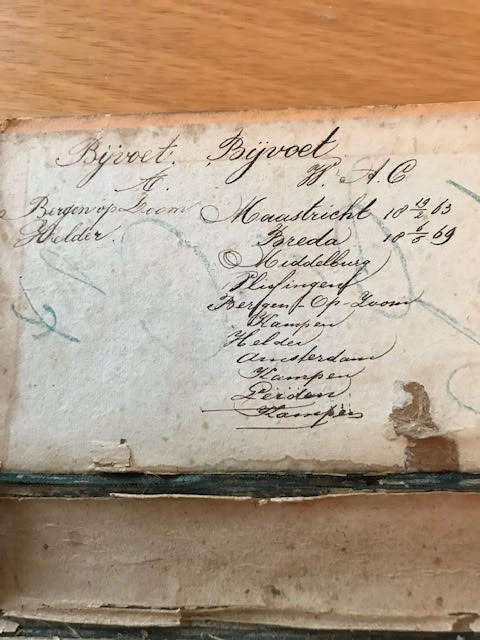 Bijvoet. Bijvoet
A. W. A. C
Bergen op Zoom Maastricht 18 19/2 63
Helder. Breda 18 6/5 69
Middelburg
Vlissingen
Bergen-Op-Zoom
Kampen
Helder
Amsterdam
Kampen
Leiden
Kampen